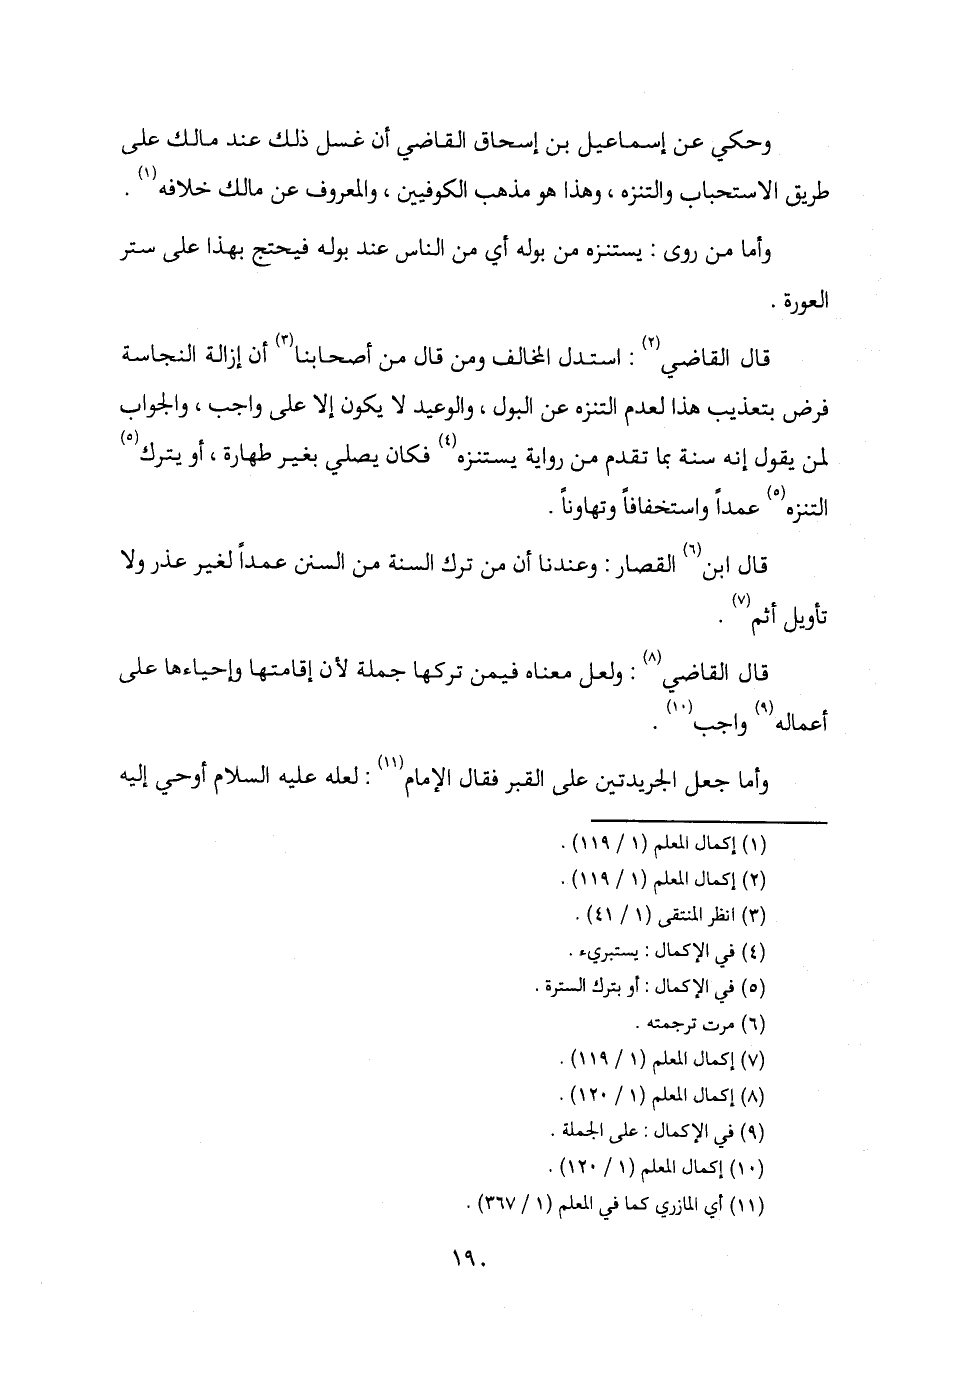 وحكي عن إسماعيل بن إسحاق القاضي أن غسل ذلك عند مالك على
طريق الاستحباب والتنزه ، وهذا هو مذهب الكوفيين ، والمعروف عن مالك خلافه(١) .
وأما من روى : يستنزه من بوله أي من الناس عند بوله فيحتج بهذا على ستر
العورة .
قال القاضي(٢) : استدل المخالف ومن قال من أصحابنا(٣) أن إزالة النجاسة
فرض بتعذيب هذا لعدم التنزه عن البول ، والوعيد لا يكون إلا على واجب ، والجواب
لمن يقول إنه سنة بما تقدم من رواية يستنزه(٤) فكان يصلي بغير طهارة ، أو يترك(٥)
التنزه(٥) عمداً واستخفافاً وتهاوناً .
قال ابن(٦) القصار : وعندنا أن من ترك السنة من السنن عمداً لغير عذر ولا
تأويل أثم(٧) .
قال القاضي(٨) : ولعل معناه فيمن تركها جملة لأن إقامتها وإحياءها على
أعماله(٩) واجب(١٠) .
وأما جعل الجريدتين على القبر فقال الإمام(١١) : لعله عليه السلام أوحي إليه
(١) إكمال المعلم (١ / ١١٩) .
(٢) إكمال المعلم (١ / ١١٩) .
(٣) انظر المنتقى (١ / ٤١) .
(٤) في الإكمال : يستبريء .
(٥) في الإكمال : أو بترك السترة .
(٦) مرت ترجمته .
(٧) إكمال المعلم (١ / ١١٩) .
(٨) إكمال المعلم (١ / ١٢٠) .
(٩) في الإكمال : على الجملة .
(١٠) إكمال المعلم (١ / ١٢٠) .
(١١) أي المازري كما في المعلم (١ / ٣٦٧) .
١٩٠